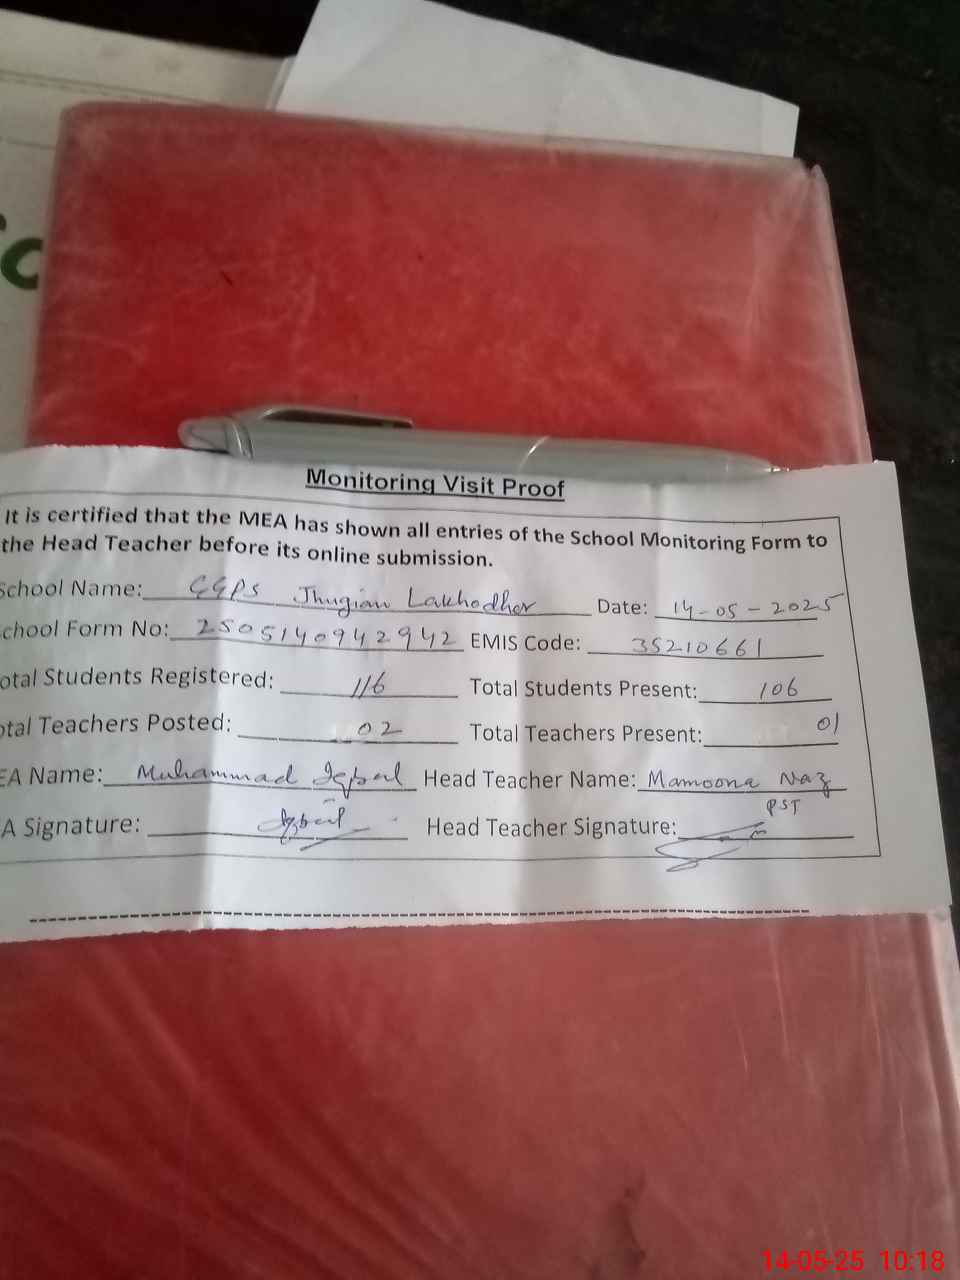 Monitoring Visit Proof
It is certified that the MEA has shown all entries of the School Monitoring Form to
the Head Teacher before its online submission.
School Name: GGPS Jhugian Lakhodher Date: 14-05-2025
chool Form No: 2505140942942 EMIS Code: 35210661
otal Students Registered: 116 Total Students Present: 106
otal Teachers Posted: 02 Total Teachers Present: 01
EA Name: Muhammad Iqbal Head Teacher Name: Mamoona Naz
PST
A Signature: Iqbal Head Teacher Signature:
14-05-25 10:18